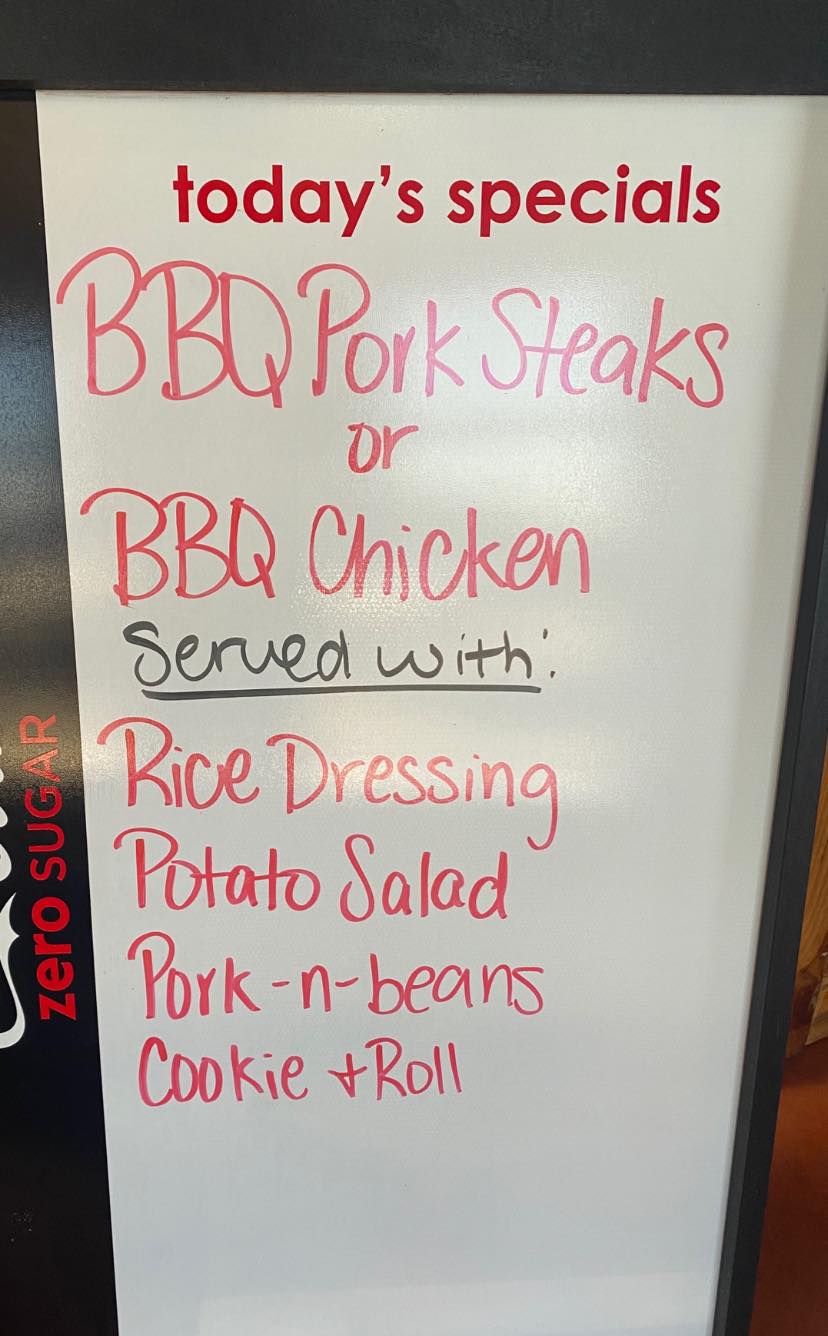 today's specials
BBQ Pork Steaks
or
BBQ Chicken
Served with:
Rice Dressing
Potato Salad
Pork-n-beans
Cookie + Roll
zero SUGAR